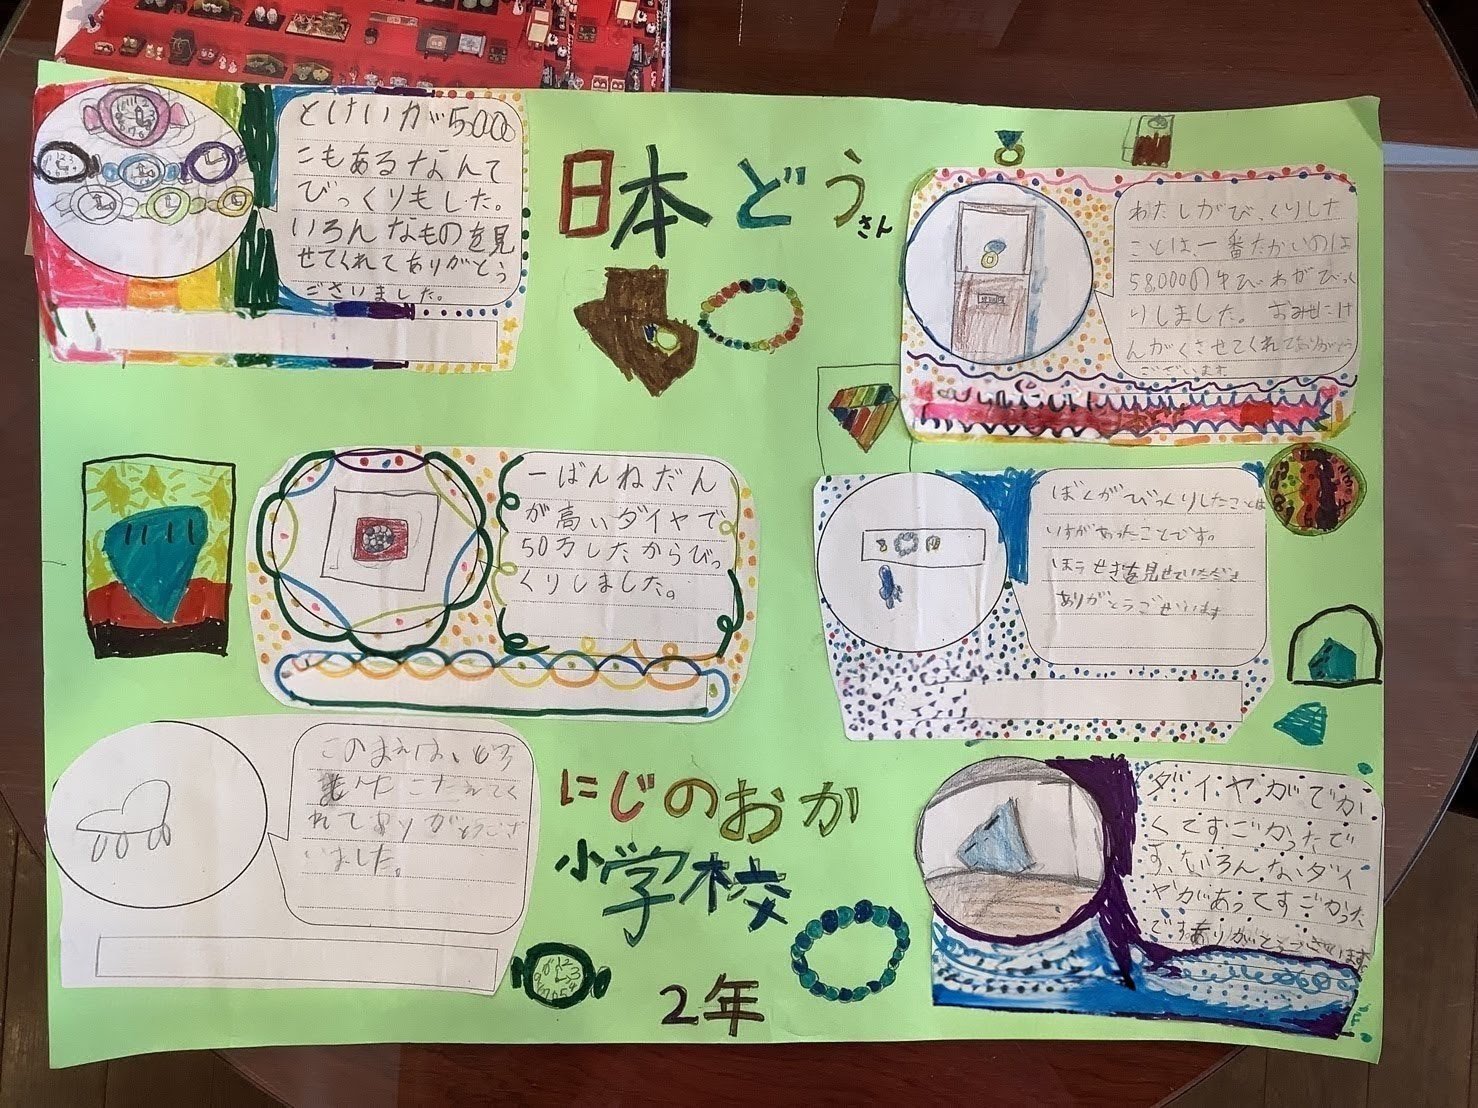 日本どうさん
とけいが500
こもあるなんて
びっくりもした。
いろんなものを見
せてくれてありがとう
ございました。
わたしがびっくりした
ことは、一番たかいのは
58,000のゆびわがびっく
りしました。おみせにけ
んがくさせてくれてありがとう
ございます
一ばんねだん
が高いダイヤで
50万したからびっ
くりしました。
ぼくがびっくりしたことは
いすがあったことです。
ほうせきを見せていただき
ありがとうございます
このまえは、
こたえてく
れてありがとうござ
いました。
にじのおか
小学校
2年
ダイヤがでか
くてすごかったで
す、いろんなダイ
ヤがあってすごかった
です。ありがとうございます。